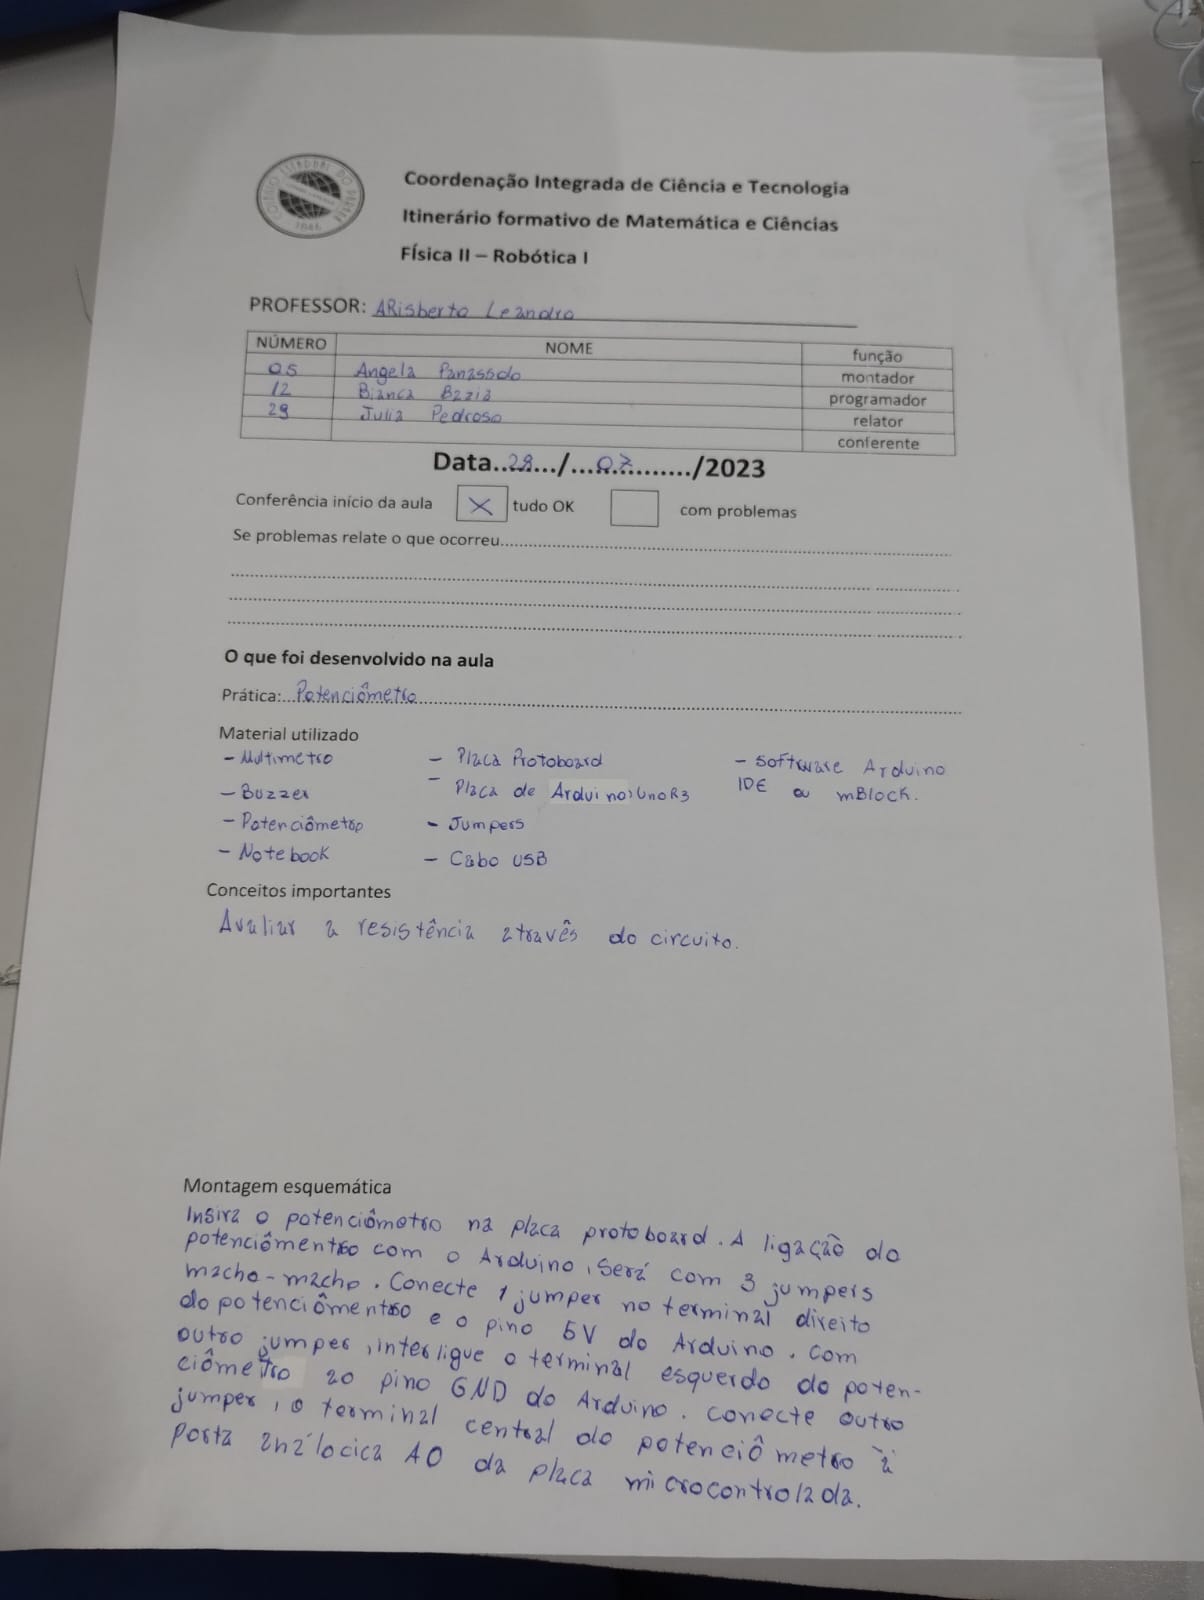 COLÉGIO ESTADUAL DO PARANÁ
1846
Coordenação Integrada de Ciência e Tecnologia
Itinerário formativo de Matemática e Ciências
Física II – Robótica I
PROFESSOR: ARisberto Leandro
NÚMERO NOME função
05 Angela Panassolo montador
12 Bianca Bazia programador
29 Julia Pedroso relator
conferente
Data..28.../...07............/2023
Conferência início da aula X tudo OK com problemas
Se problemas relate o que ocorreu
O que foi desenvolvido na aula
Prática:...Potenciômetro
Material utilizado
- Multimetro - Placa Protoboard - Software Arduino
- Buzzer - Placa de Arduino Uno R3 IDE ou mBlock.
- Potenciômetro - Jumpers
- Notebook - Cabo USB
Conceitos importantes
Avaliar a resistência atravês do circuito.
Montagem esquemática
Insira o potenciômetro na placa protoboard. A ligação do
potenciômentro com o Arduino, será com 3 jumpers
macho-macho. Conecte 1 jumper no terminal direito
do potenciômentro e o pino 5V do Arduino. Com
outro jumper, interligue o terminal esquerdo do poten-
ciômetro ao pino GND do Arduino. Conecte outro
jumper, o terminal central do potenciômetro à
Porta análocica A0 da placa microcontrolada.